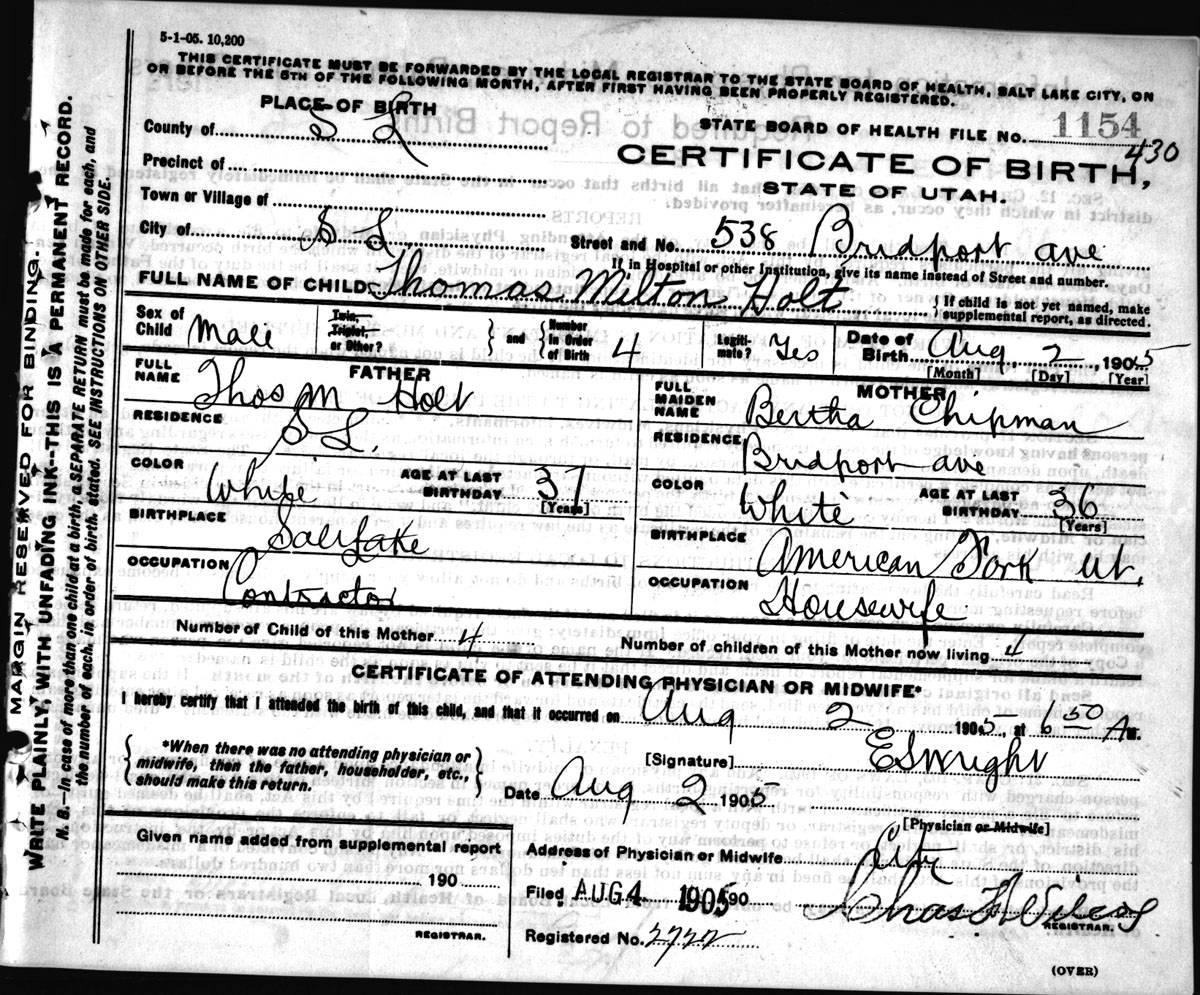 5-1-05. 10,200
THIS CERTIFICATE MUST BE FORWARDED BY THE LOCAL REGISTRAR TO THE STATE BOARD OF HEALTH, SALT LAKE CITY, ON
OR BEFORE THE 5TH OF THE FOLLOWING MONTH, AFTER FIRST HAVING BEEN PROPERLY REGISTERED.
PLACE OF BIRTH
STATE BOARD OF HEALTH FILE NO. 1154
430
County of S L
CERTIFICATE OF BIRTH,
STATE OF UTAH.
Precinct of
Town or Village of
City of S L Street and No. 538 Bridport ave
If in Hospital or other Institution, give its name instead of Street and number.
FULL NAME OF CHILD Thomas Milton Holt } If child is not yet named, make supplemental report, as directed.
Sex of Child Male Twin, Triplet, or Other? } and { Number in Order of Birth 4 Legitimate? Yes Date of Birth Aug 2, 1905
[Month] [Day] [Year]
FATHER
FULL NAME Thos M Holt
RESIDENCE S L.
COLOR White AGE AT LAST BIRTHDAY 37 [Years]
BIRTHPLACE Salt Lake
OCCUPATION Contractor
MOTHER
FULL MAIDEN NAME Bertha Chipman
RESIDENCE Bridport ave
COLOR White AGE AT LAST BIRTHDAY 36 [Years]
BIRTHPLACE American Fork Ut.
OCCUPATION Housewife
Number of Child of this Mother 4 Number of children of this Mother now living 4
CERTIFICATE OF ATTENDING PHYSICIAN OR MIDWIFE*
I hereby certify that I attended the birth of this child, and that it occurred on Aug 2 1905, at 6 50 A M.
*When there was no attending physician or
midwife, then the father, householder, etc.,
should make this return.
[Signature] E S Wright
Date Aug 2 1905
[Physician or Midwife]
Given name added from supplemental report
190
REGISTRAR.
Address of Physician or Midwife City
Filed AUG 4 1905 190
Chas F Wilcox
REGISTRAR.
Registered No. 2722
(OVER)
MARGIN RESERVED FOR BINDING.
WRITE PLAINLY, WITH UNFADING INK--THIS IS A PERMANENT RECORD.
N. B.—In case of more than one child at a birth, a SEPARATE RETURN must be made for each, and
the number of each, in order of birth, stated. SEE INSTRUCTIONS ON OTHER SIDE.